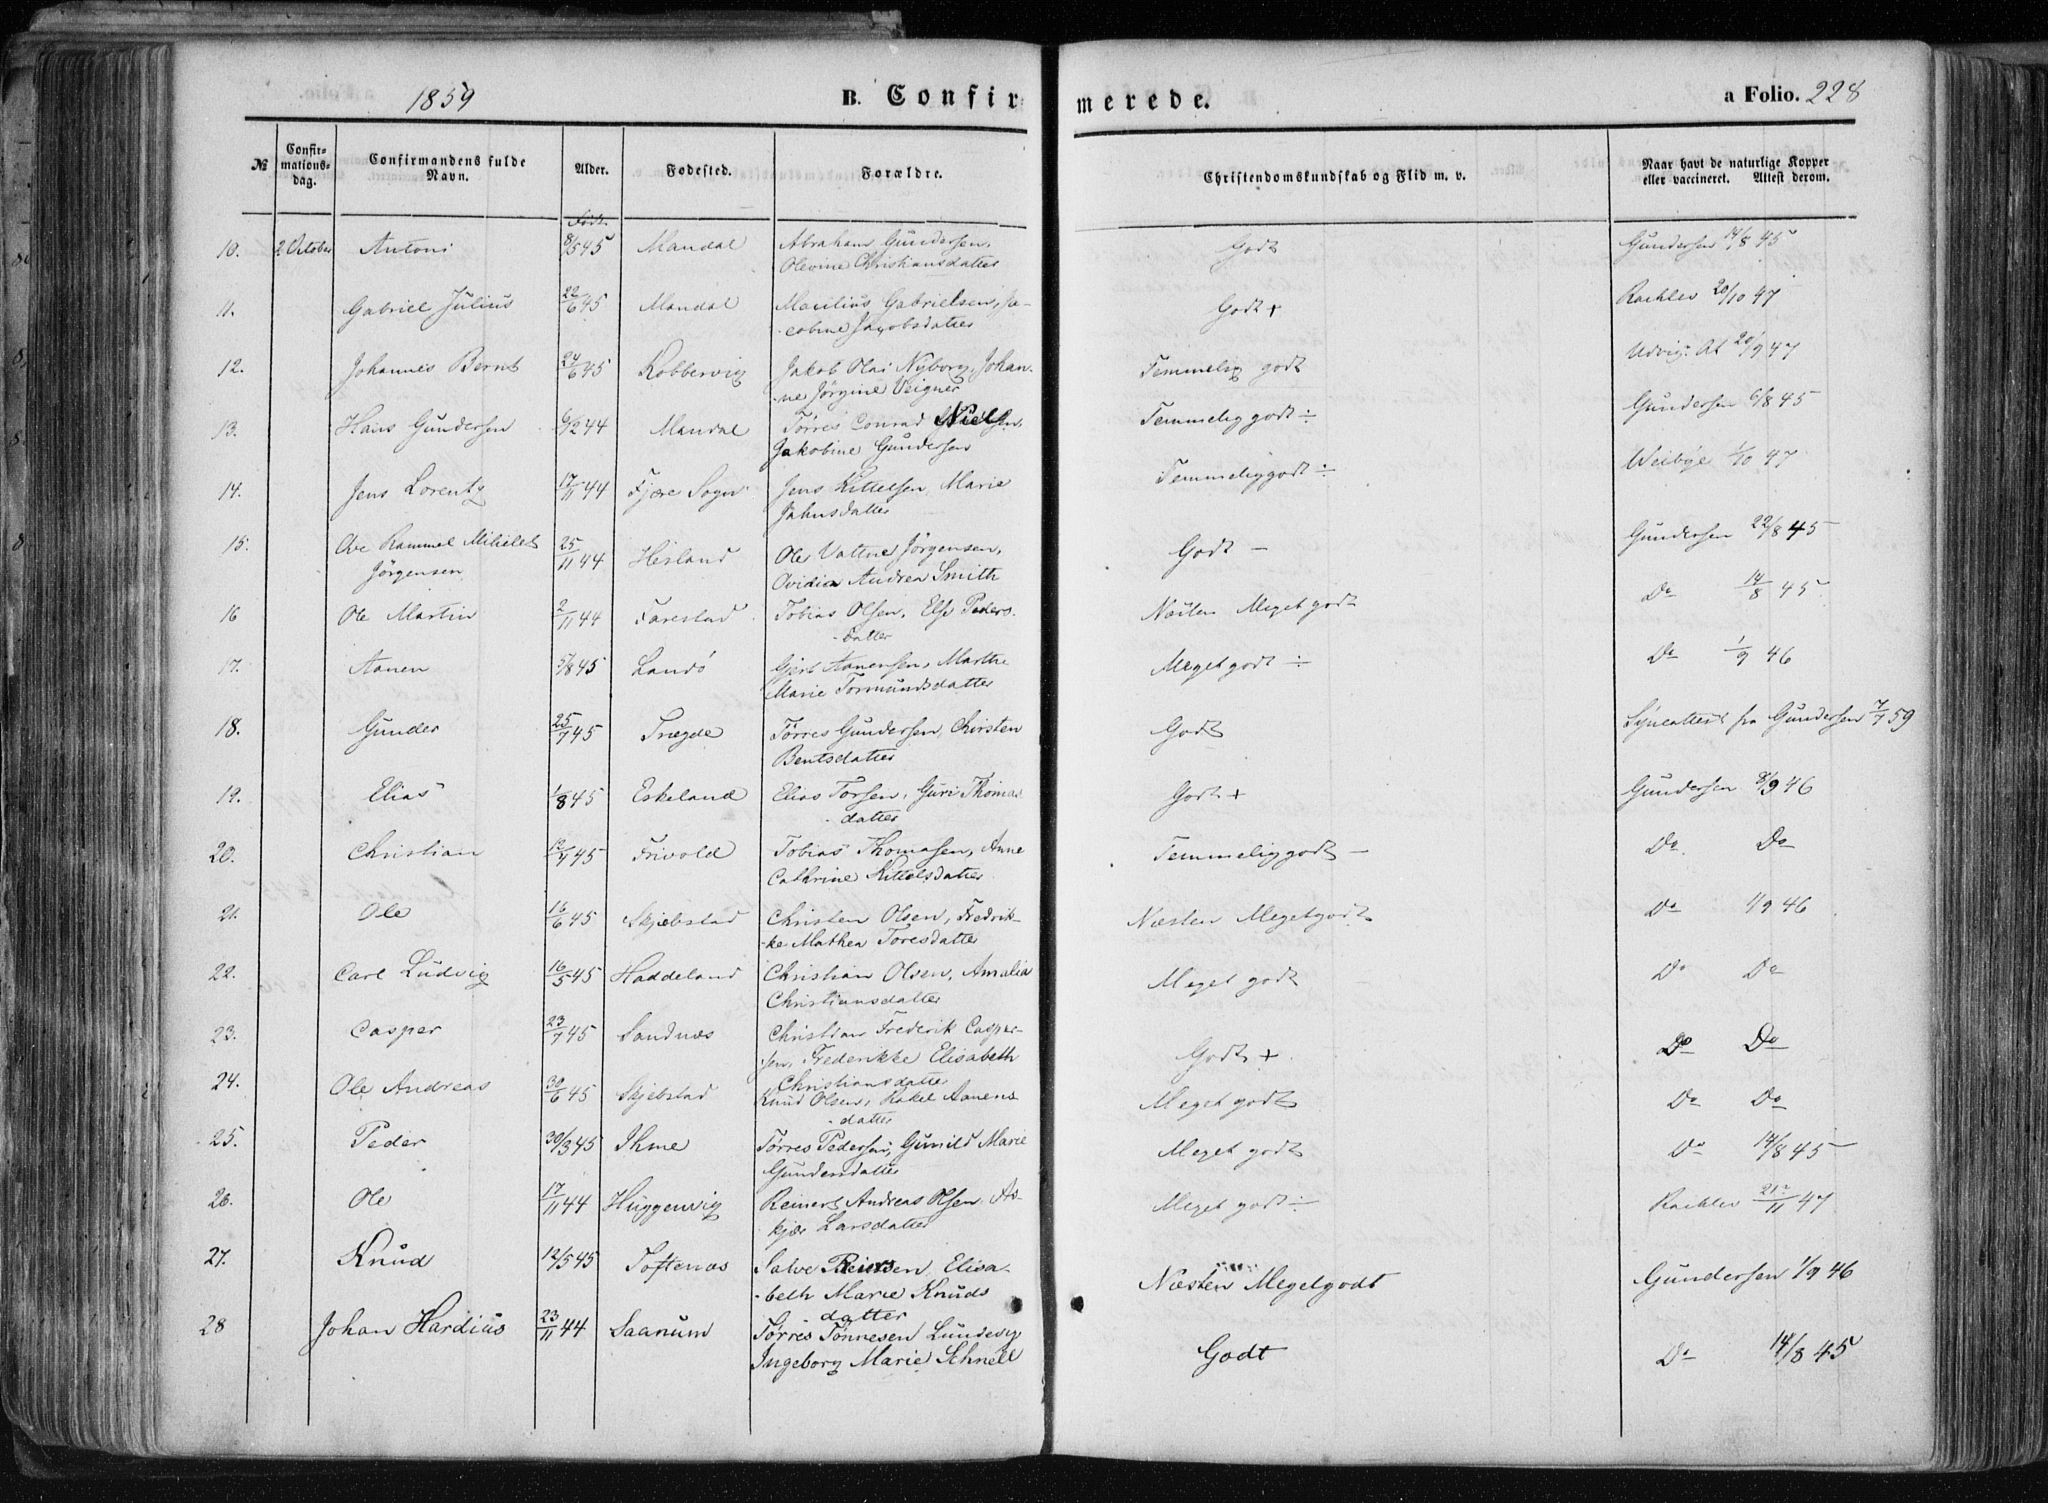 1859 B. Confirmerede. a Folio. 228
№ Confirmationsdag. Confirmandens fulde Navn. Alder. Fødested. Forældre. Christendomskundskab og Flid m. v. Naar havt de naturlige Kopper eller vaccineret. Attest derom.
Født
10. 2 October Antoni 8/5 45 Mandal Abraham Gundersen, Godt Gundersen 14/8 45
Olevine Christiansdatter
11. Gabriel Julius 22/6 45 Mandal Maulius Gabrielsen, Ja- Godt + Rachlev 20/10 47
cobine Jacobsdatter
12. Johannes Bernt 24/6 45 Kobbervig Jakob Olai Nyborg, Johan- Temmelig godt 20/9 47
-ne Jörgine Veigner
13. Hans Gundersen 6/12 44 Mandal Törres Conrad Nielsen, Temmelig godt ÷ Gundersen 6/8 45
Jakobine Gundersen
14. Jens Lorentz 17/11 44 Fjære Sogn Jens Kittelsen, Marie Temmelig godt ÷ Weibye 1/10 47
Jahnsdatter
15. Ove Rammel Milielet 25/11 44 Hesland Ole Vattne Jörgensen, Godt — Gundersen 22/8 45
Jörgensen Ovidia Andrea Smith
16 Ole Martin 2/11 44 Farestad Tobias Olsen, Else Peders- Næsten Meget godt Do 14/8 45
datter
17. Aanen 5/8 45 Landö Gjert Aanensen, Marthe Meget godt ÷ Do 1/9 46
Marie Tormundsdatter
18. Gunder 25/7 45 Trægde Törres Gundersen, Chirsten Godt Syneattest fra Gundersen 7/7 59
Bentsdatter
19. Elias 1/8 45 Eskeland Elias Torsen, Guri Thomas Godt + Gundersen 8/9 46
datter
20. Christian 12/7 45 Frivold Tobias Thomasen, Anne Temmelig godt — Do. Do
Cathrine Kittelsdatter
21. Ole 16/6 45 Skjebstad Christen Olsen, Fredrik- Næsten Meget godt Do 1/9 46
-ke Mathea Toresdatter
22. Carl Ludvig 16/5 45 Haddeland Christian Olsen, Amalia Meget godt Do Do
Christiansdatter
23. Casper 23/7 45 Sandnæs Christian Frederik Casper- Godt + Do Do
sen, Frederikke Elisabeth
Christiansdatter
24. Ole Andreas 30/6 45 Skjebstad Knud Olsen, Rakel Aanens Meget godt Do Do
datter
25. Peder 30/3 45 Ihme Törres Pedersen, Gunild Marie Meget godt Do 14/8 45
Gundersdatter
26. Ole 17/11 44 Huggenvig Reinert Andreas Olsen, As- Meget godt ÷ Rachlev 21/11 47
kjær Larsdatter
27. Knud 12/5 45 Toftenæs Salve Reiersen, Elisa- Næsten Meget godt Gundersen 1/9 46
-beth Marie Knuds
datter
28 Johan Hardius 23/11 44 Saanum Törres Tönnesen Lundevig Godt Do 14/8 45
Ingeborg Marie Schnell